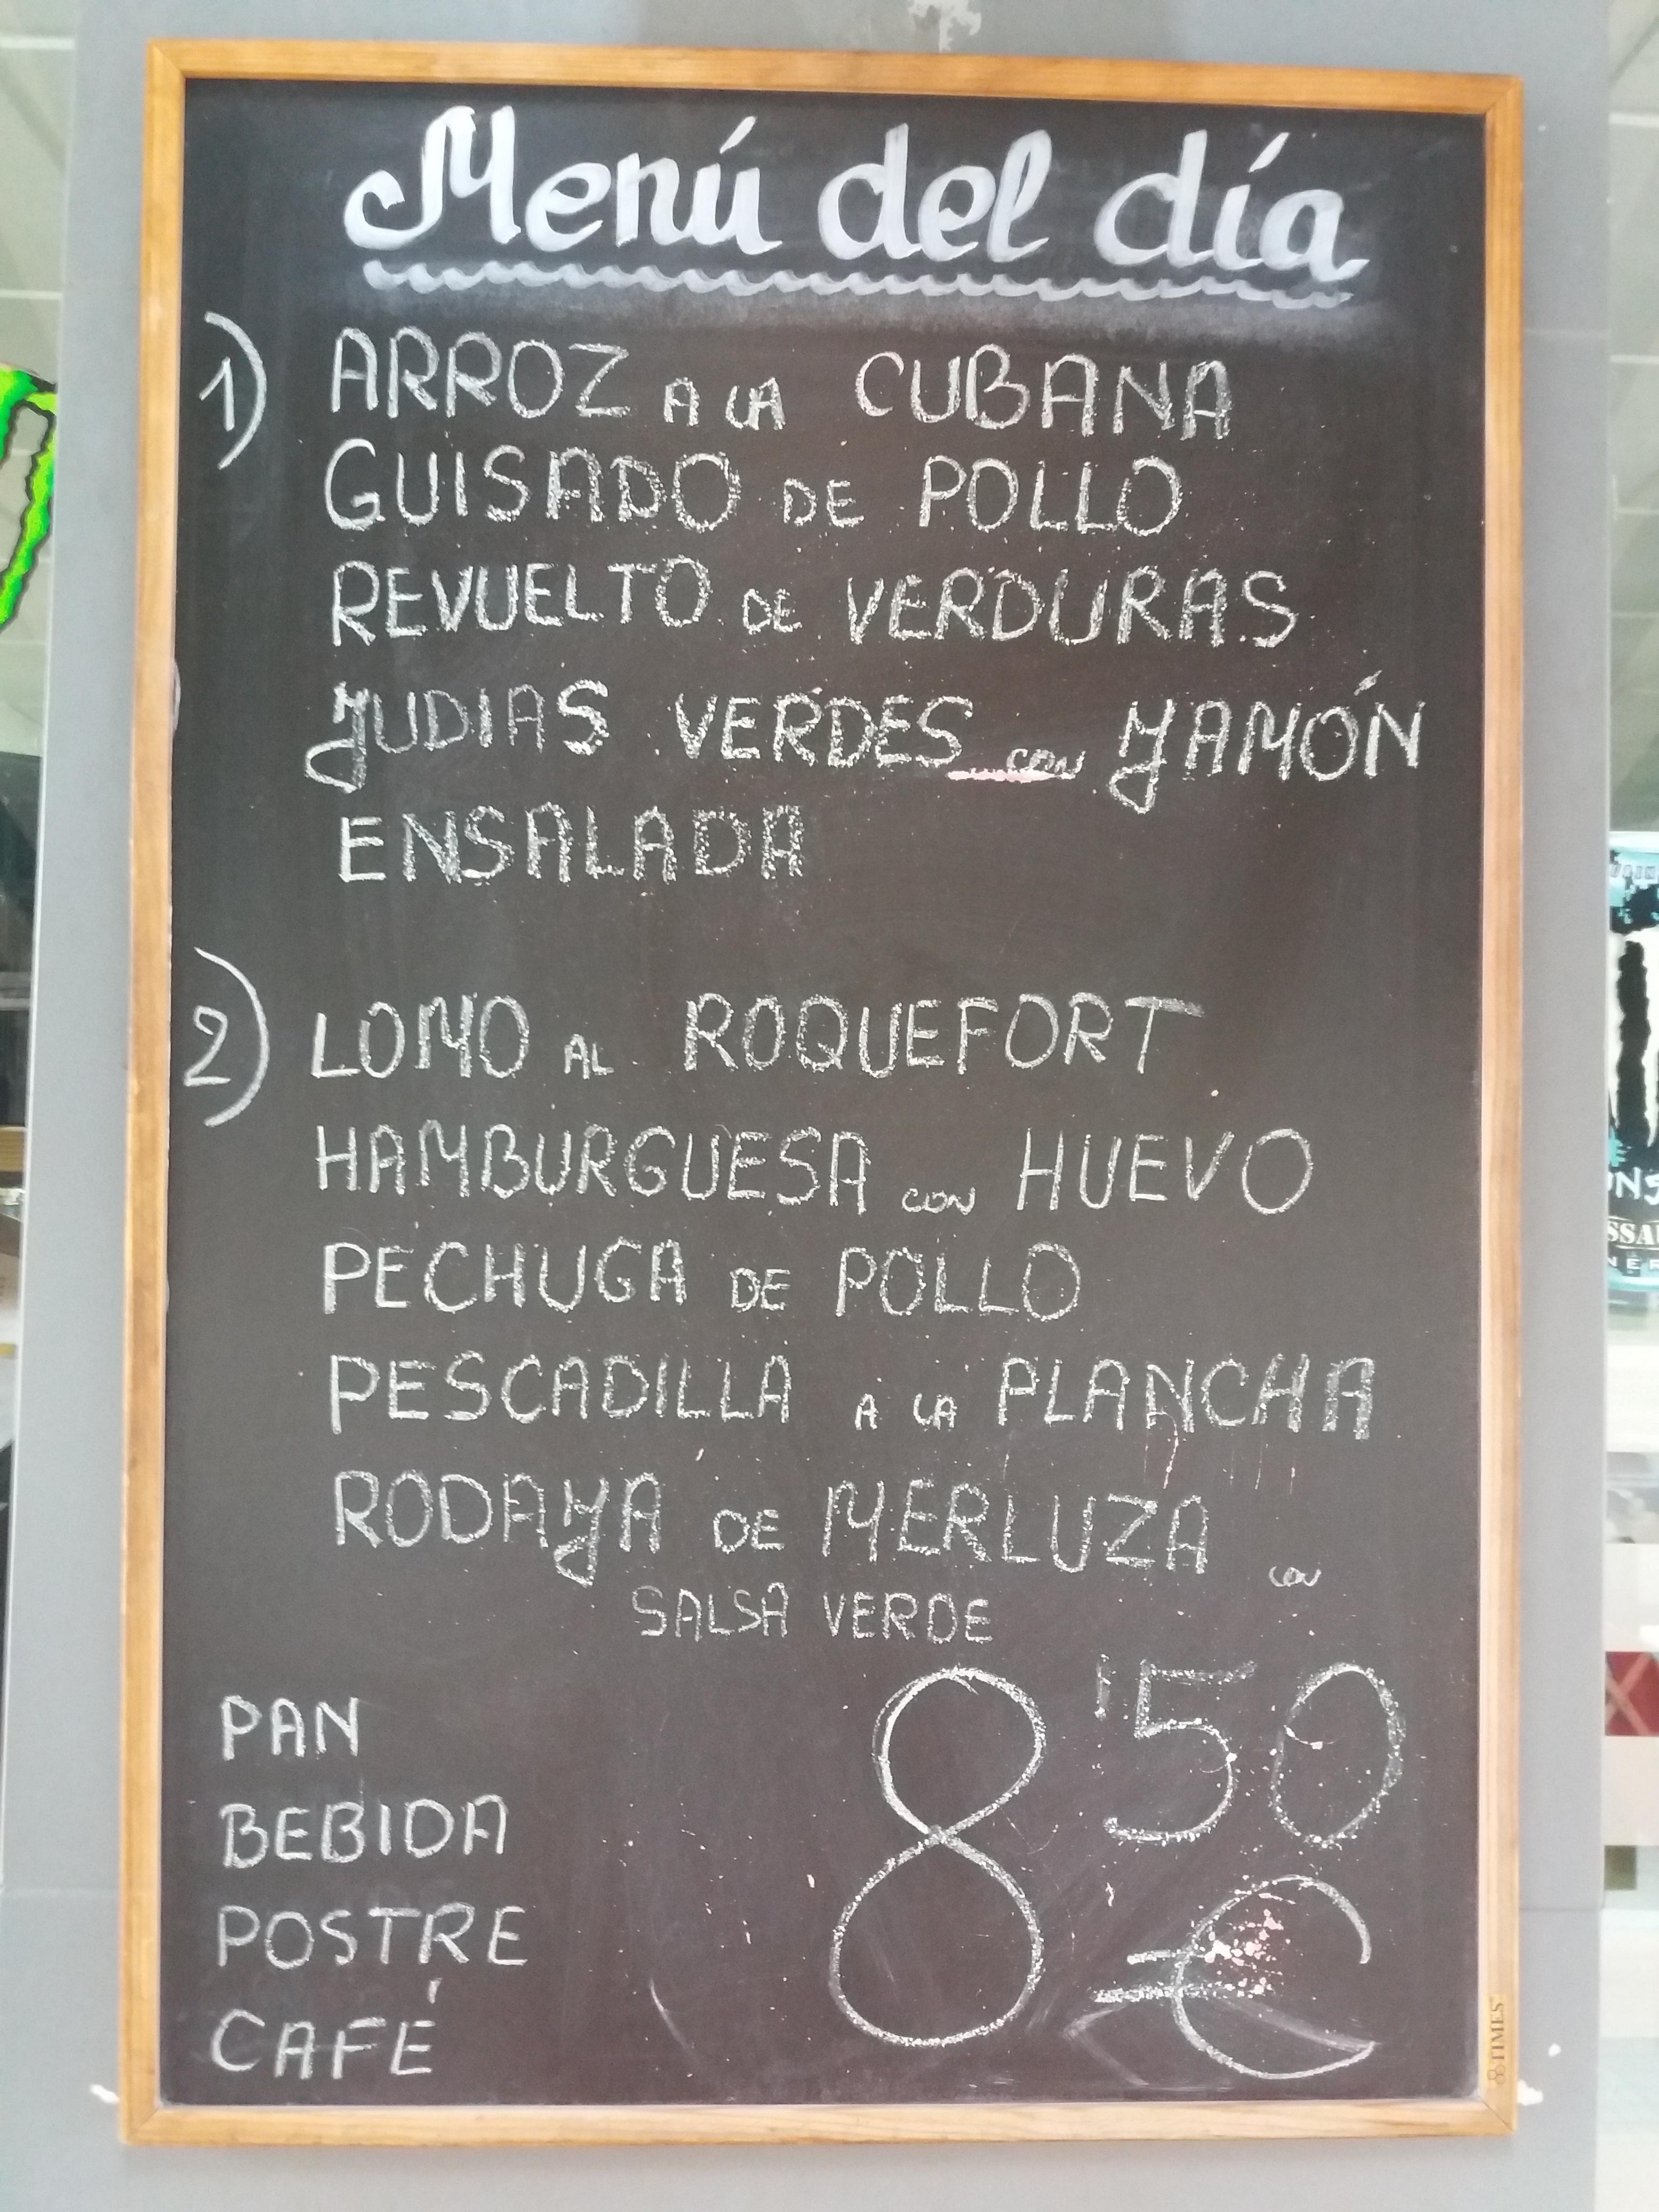 Menú del día
1) ARROZ A LA CUBANA
GUISADO DE POLLO
REVUELTO DE VERDURAS
JUDIAS VERDES CON JAMÓN
ENSALADA
2) LOMO AL ROQUEFORT
HAMBURGUESA CON HUEVO
PECHUGA DE POLLO
PESCADILLA A LA PLANCHA
RODAJA DE MERLUZA CON
SALSA VERDE
PAN
BEBIDA
POSTRE
CAFÉ
8'50
€
TIMES